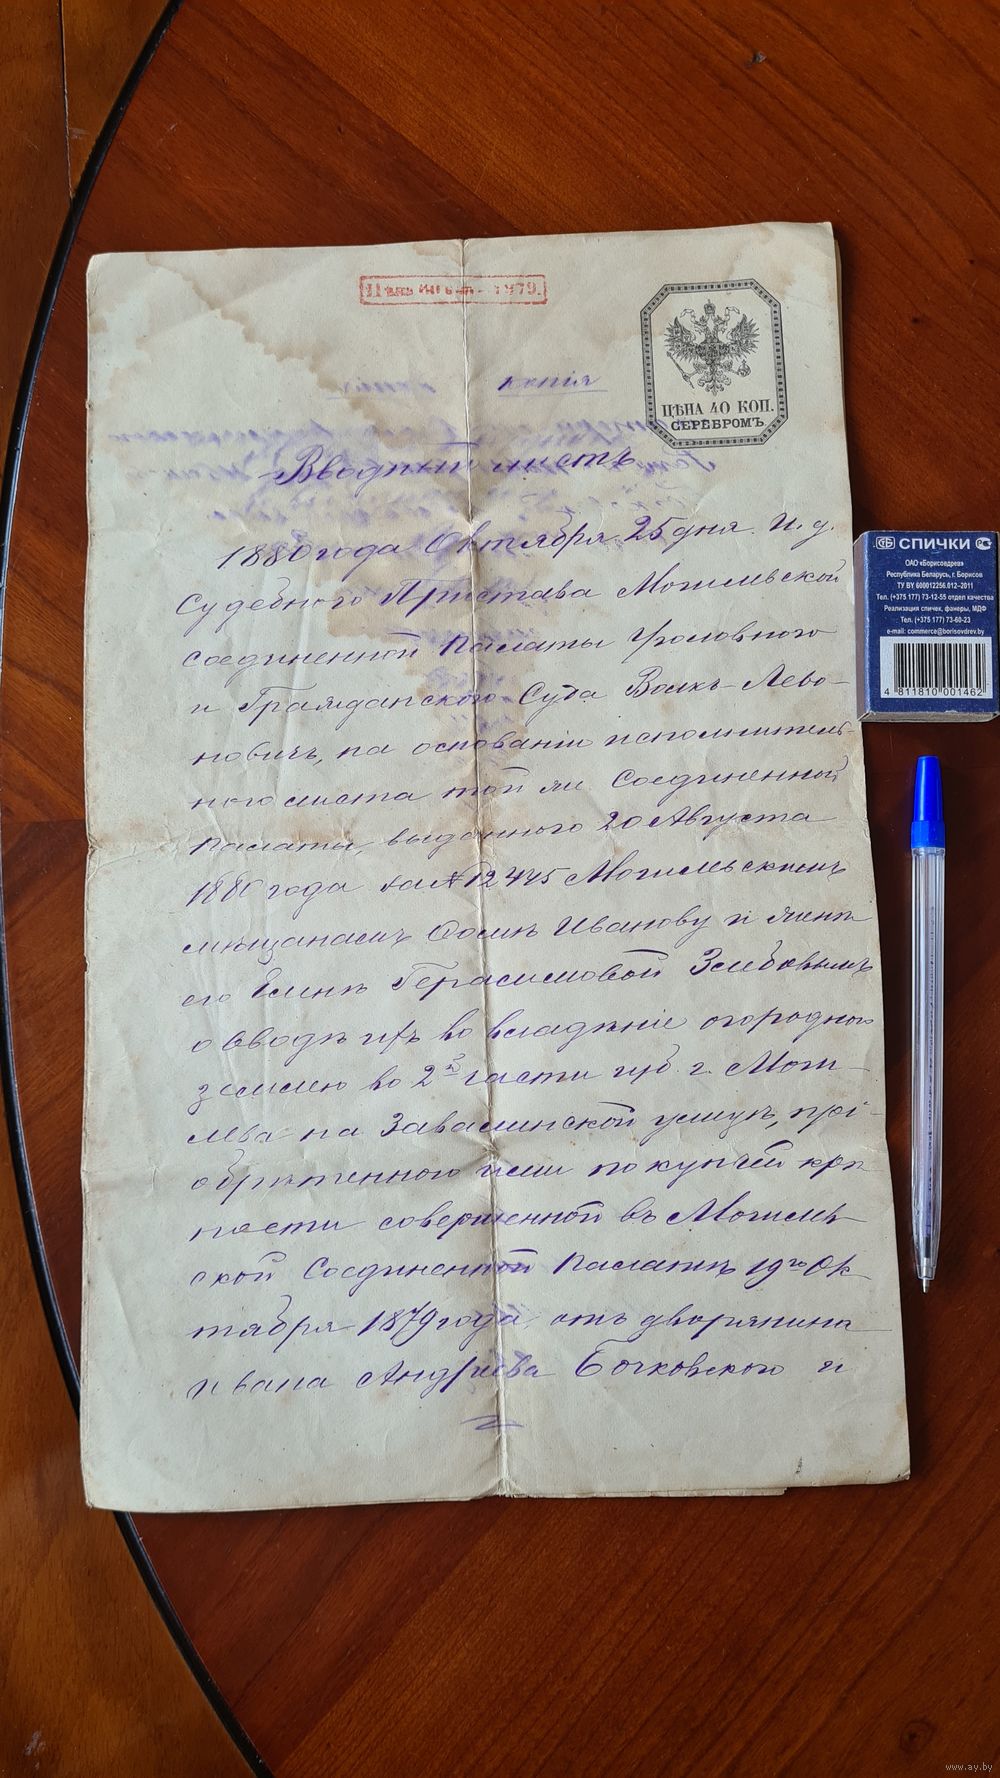 1879.
копія
ЦѢНА 40 КОП.
СЕРЕБРОМЪ.
Вводный листъ
1880 года Октября 25 дня. И. д.
Судебного Пристава Могилевской
соединенной Палаты Уголовного
и Гражданского Суда Волкъ-Лево-
новичъ, на основаніи исполнитель-
ного листа той же Соединенной
Палаты, выданного 20 Августа
1880 года за № 12445 Могилевскимъ
мѣщанамъ Ѳомѣ Иванову и женѣ
его Еленѣ Герасимовой Зембовымъ
о вводѣ ихъ во владѣніе огородного
землею во 2й части губ. г. Моги-
лева на Завалинской улицѣ, прі-
обрѣтенного ими по купчей крѣ-
пости совершенной въ Могилев-
ской Соединенной Палатѣ 19го Ок-
тября 1879 года, отъ дворянина
Ивана Андреева Бочковского и
СПИЧКИ
ОАО «Борисовдрев»
Республика Беларусь, г. Борисов
ТУ BY 600012256.012–2011
Тел. (+375 177) 73-12-55 отдел качества
Реализация спичек, фанеры, МДФ
Тел. (+375 177) 73-60-23
e-mail: commerce@borisovdrev.by
4 811810 001462
www.ay.by